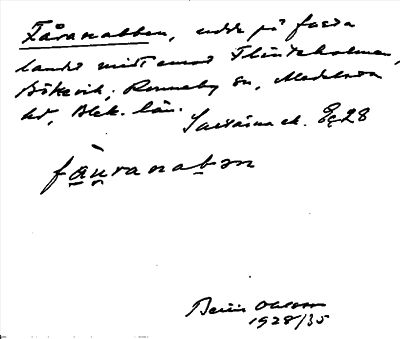 Fåranabben, udde på fasta
landet mitt emot Flinteholmen,
Bökevik, Ronneby sn, Medelsta
hd, Blek. län. Saxemara ek. Eg 28
fåuranabən
Beius Ohlsson
1928/35